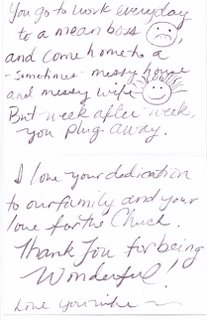 You go to work everyday
to a mean boss
and come home to a
- sometimes - messy house
and messy wife
But week after week,
you plug away.
I love your dedication
to our family and your
love for the Church.
Thank You for being
Wonderful!
Love your wife